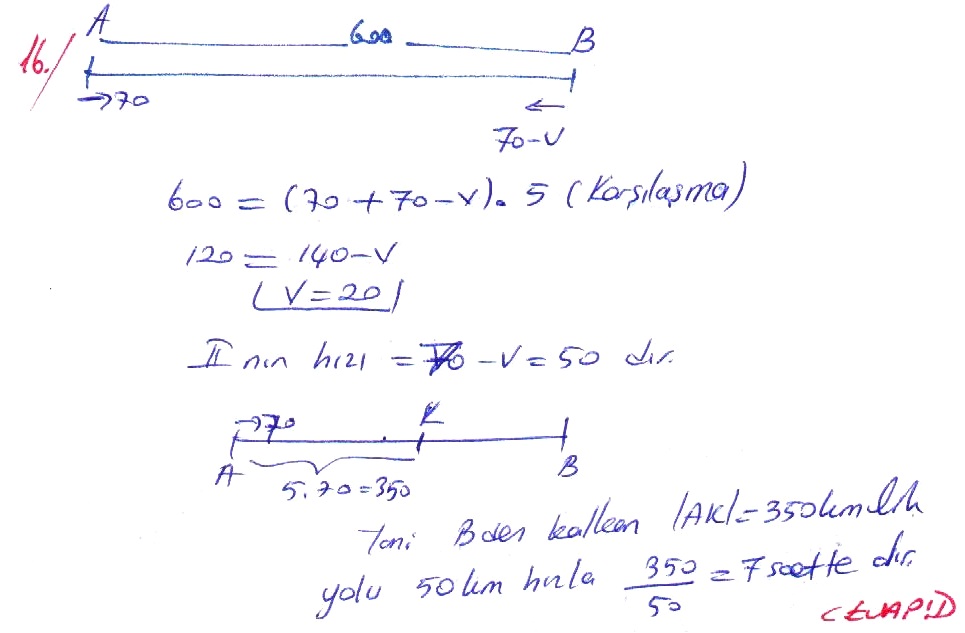 A 600 B
16./
→70 ←
70-V
600 = (70 + 70-V). 5 (Karşılaşma)
120 = 140-V
(V=20)
II nın hızı = 70 -V = 50 dir.
→70 K
A B
5.70=350
Yani B den kalkan |AK|=350km lik
yolu 50 km hızla 350/50 = 7 saatte dir.
CEVAP:D